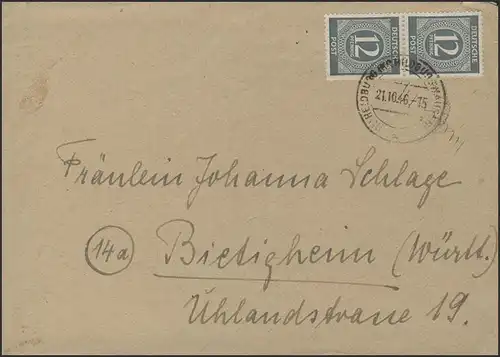 DEUTSCHE POST 12 PFENNIG
DEUTSCHE POST 12 PFENNIG
21.10.46.-15
Fräulein Johanna Schlage
14a
Bietigheim (Württ.)
Uhlandstrasse 19.